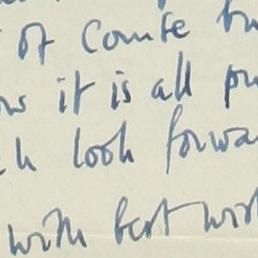 of course
it is all
look forwa
with best wis